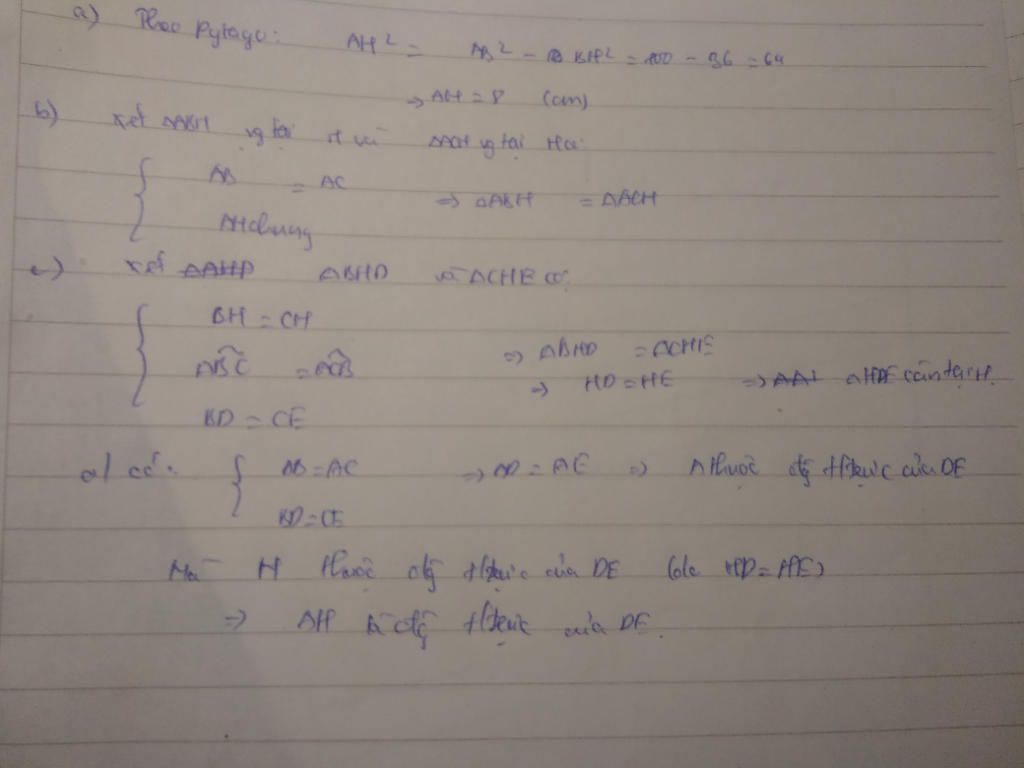 a) Theo Pytago: AH² = AB² - BH² = 100 - 36 = 64
=> AH = 8 (cm)
b) Xét ΔABH vg tại H và ΔACH vg tại H có:
{ AB = AC => ΔABH = ΔACH
AH chung
c) Xét ΔBHD và ΔCHE có:
{ BH = CH
ABC = ACB => ΔBHD = ΔCHE
=> HD = HE => ΔHDE cân tại H.
BD = CE
d) có: { AB = AC => AD = AE => A thuộc đg tr trực của DE
BD = CE
Mà H thuộc đg tr trực của DE (do HD = HE)
=> AH là đg tr trực của DE.